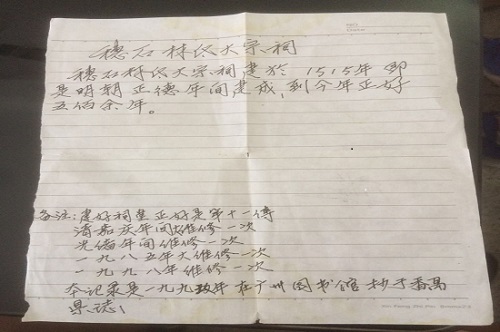 穗石林氏大宗祠
穗石林氏大宗祠建於1515年即
是明朝正德年间建成，到今年正好
五佰余年。
备注：建好祠堂正好是第十一传
清嘉庆年间维修一次
光绪年间维修一次
一九八五年大维修一次
一九九八年维修一次
本记录是一九九玖年在广州图书馆抄于番禺
县志！